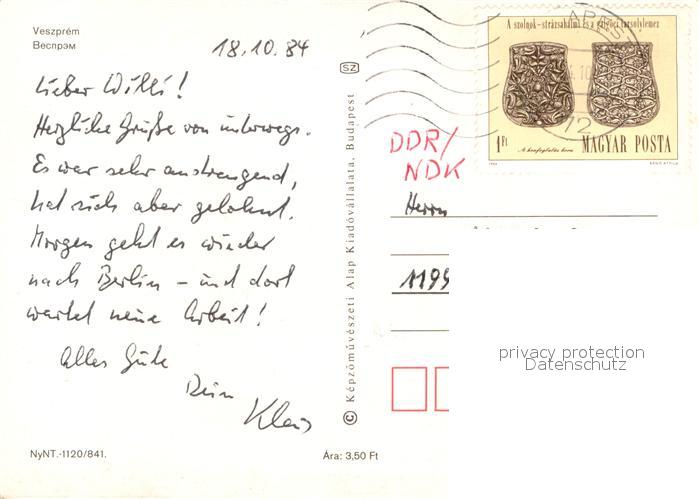 Veszprém
Веспрэм
18.10.84
Lieber Willi!
Herzliche Grüße von unterwegs.
Es war sehr anstrengend,
hat sich aber gelohnt.
Morgen geht es wieder
nach Berlin – und dort
wartet neue Arbeit!
Alles Gute
Dein
Klaus
NyNT.-1120/841.
Ára: 3,50 Ft
SZ
© Képzőművészeti Alap Kiadóvállalata, Budapest
A szolnok-strázsahalmi és a galgóci tarsolylemez
72
1Ft
A honfoglalás kora
MAGYAR POSTA
1984
DDR/
NDK
Herrn
1199
privacy protection
Datenschutz